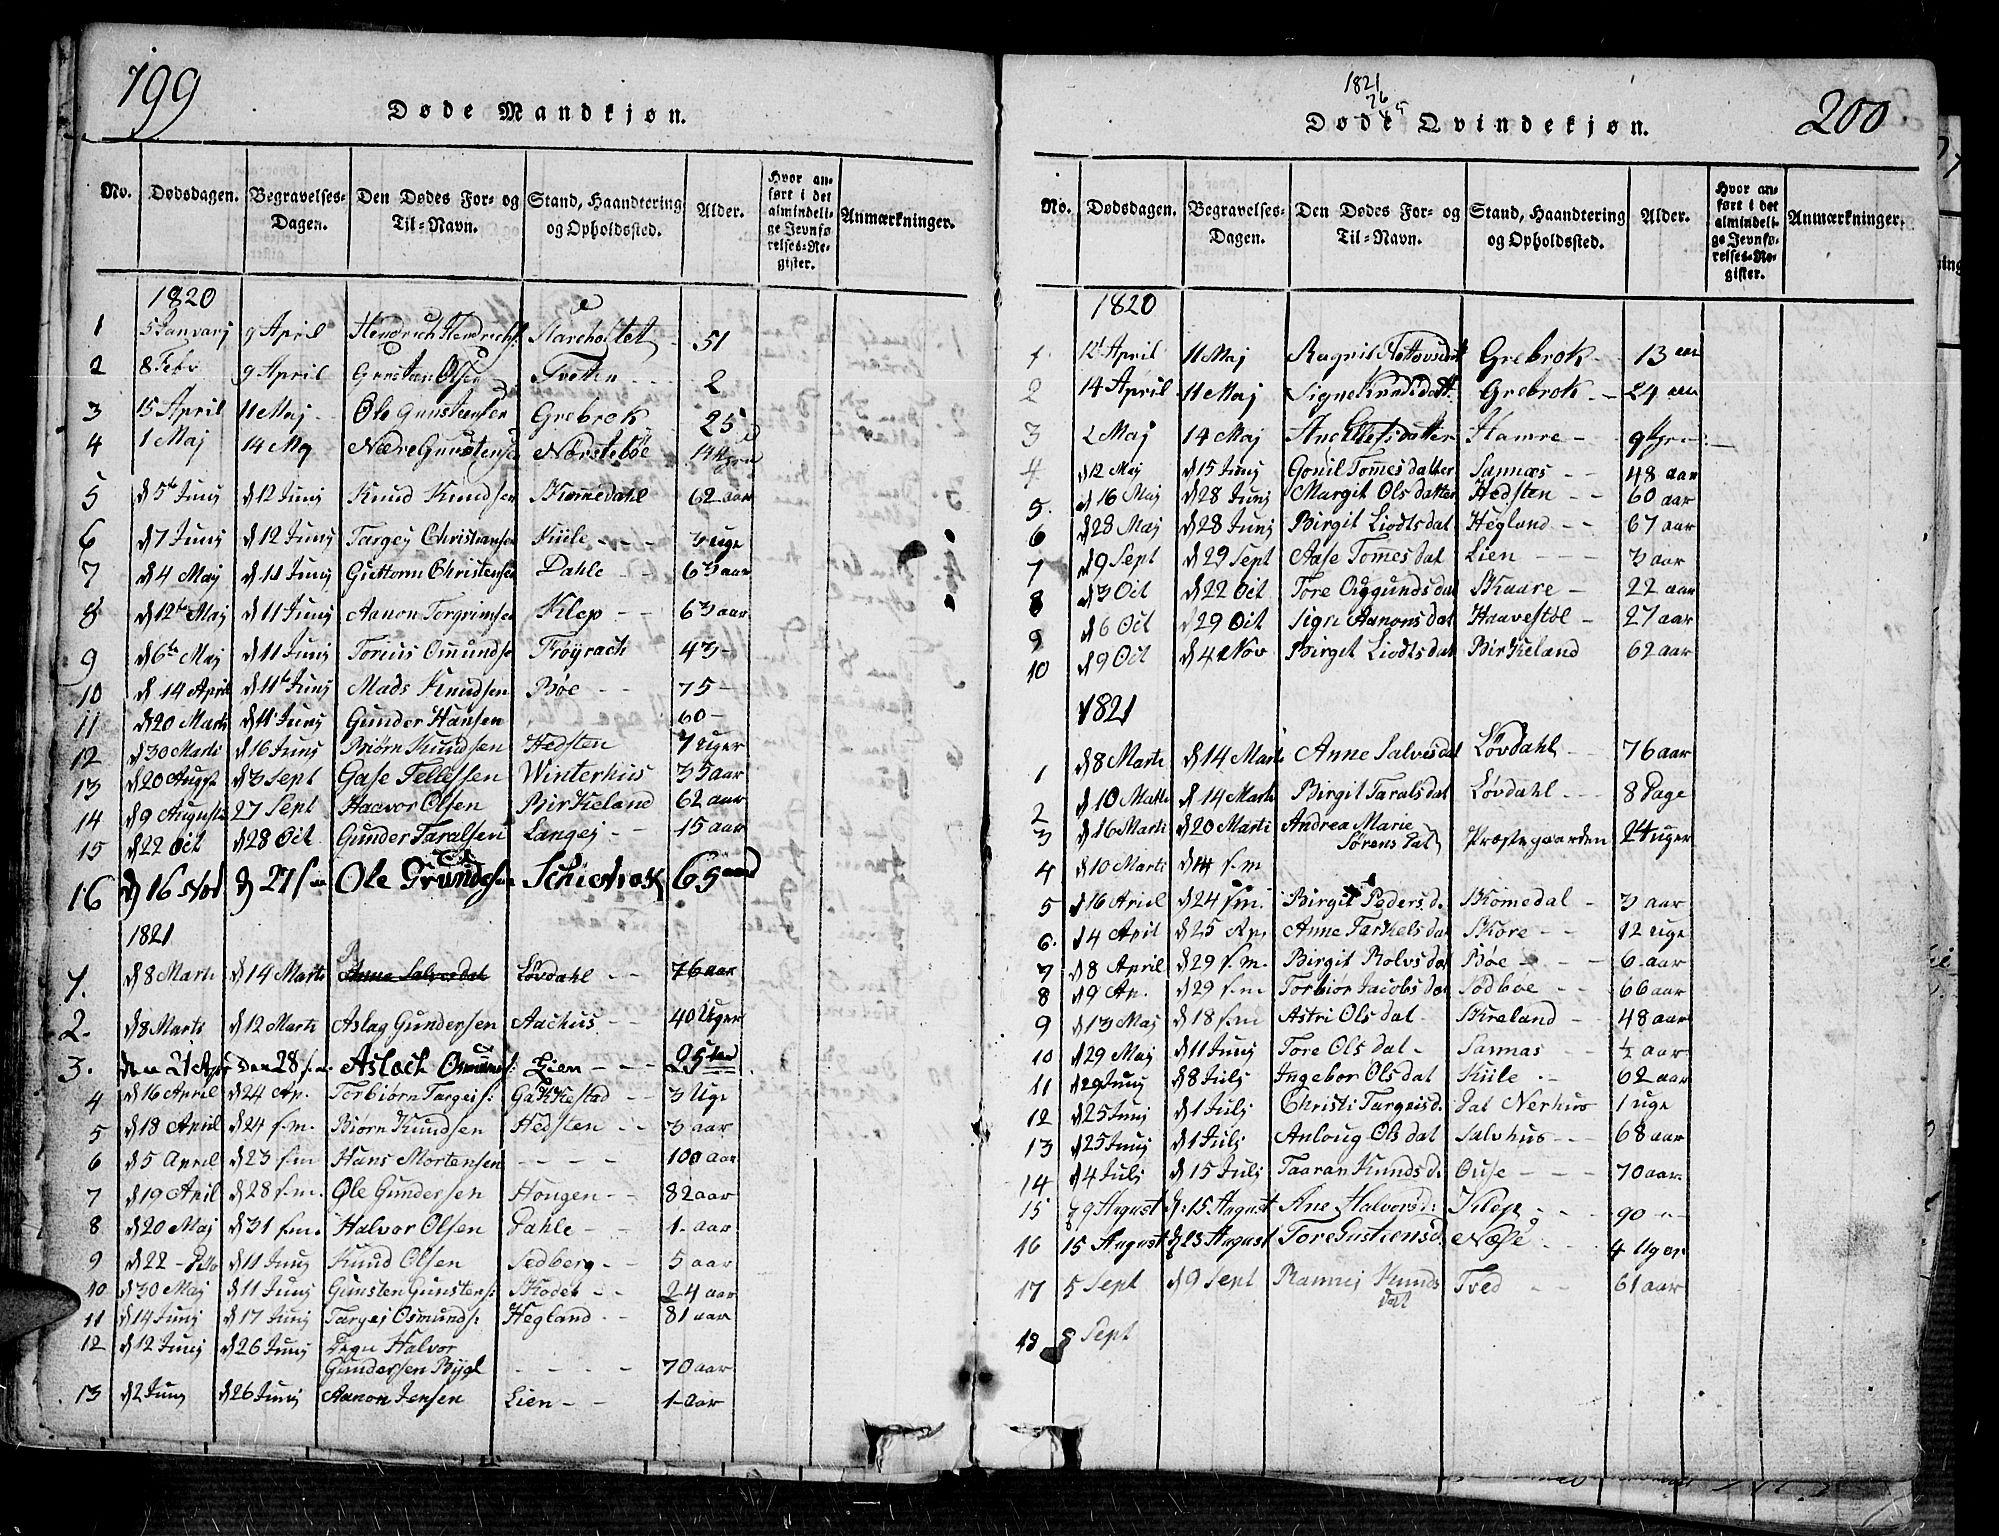 199
Døde Mandkjøn.
No. Dødsdagen. Begravelses-Dagen. Den Dødes For- og Til-Navn. Stand, Haandtering og Opholdssted. Alder. Hvor anført i det almindelige Jevnførelses-Register. Anmærkninger.
1820
1 5 Januarj 9 April Hendrich Hendrichs: Stareholtet 51
2 8 Febr 9 April Gunstan Olsen Tveten 2
3 15 April 11 Maj Ole Gunstensen Grebrok 25
4 1 Maj 14 Maj Nære Gunstensen Nørstebøe 14
5 d 5te Junj d 12 Junj Knud Knudsen Skomedahl 62 aar
6 d 7 Junj d 12 Junj Targej Christiansen Kiile 3 uge
7 d 4 Maj d 11 Junj Guttorm Christensen Dahle 63 aar
8 d 12te Maj d 11 Junj Aanon Torgrimsen Klep 63 aar
9 d 6te Maj d 11 Junj Torius Omundse Frøyrach 43
10 d 14 April d 11te Junj Mads Knudsen Bøe 75
11 d 20 Marti d 11 Junj Gunder Hansen 60
12 d 30 Marti d 16 Junj Biørn Knudsen Hedsten 7 uger
13 d 20 Augst d 3 Sept Gase Tellefsen Winterhus 35 aar
14 d 9 Augusti 27 Sept Haavor Olsen Birkeland 62 aar
15 d 22 Oct d 28 Oct Gunder Taralsen Langej 15 aar
16 d 16 Nov d 21 Ole Grundesen 65 aar
1821
1. d 8 Marti d 14 Marti Anne Salvesdat Løvdahl 76 aar
2. d 8 Marti d 12 Marti Aslag Gundersen Aachus 40 Uger
3. den 21 Apr den 28 Aslach Osmunds: Lien 25
4 d 16 April d 24 Ap. Torbiørn Targeis: Gakkestad 3 Uge
5 d 18 April d 24 f.m. Biørn Knudsen Hedsten 3 aar
6 d 5 April d 23 f.m Hans Mortensen 100 aar
7 d 19 April d 28 f.m. Ole Gundersen Hougen 82 aar
8 d 20 Maj d 31 f.m. Halvor Olsen Dahle 1 aar
9 d 22 d 11 Junj Knud Olsen Sedberg 5 aar
10 d 30 Maj d 11 Junj Gunsten Gunstens: Skodet 24 aar
11 d 14 Junj d 17 Junj Targej Osmunds: Hegland 81 aar
12 d 12 Junj d 26 Junj Halvor
Gundersen Bygl 70 aar
13 d 2 Junj d 26 Junj Aanon Jensen Lien 1 aar
1821
200
Døde Qvindekjøn.
No. Dødsdagen. Begravelses-Dagen. Den Dødes For- og Til-Navn. Stand, Haandtering og Opholdssted. Alder. Hvor anført i det almindelige Jevnførelses-Register. Anmærkninger.
1820
1 12 April 11 Maj Ragnil Grebrok 13
2 14 April 11 Maj Signe Knudsdatt. Grebrok 24
3 2 Maj 14 Maj Ane Elefsdatter Hamre 9
4 d 12 Maj d 15 Junj Gonil Tomesdatter Sannæs 48 aar
5. d 16 Maj d 28 Junj Margit Olsdatter Hedsten 60 aar
6 d 28 Maj d 28 Junj Birgit Liodtsdat Hegland 67 aar
7 d 9 Sept d 29 Sept Aase Tomesdat Lien 3 aar
8 d 3 Oct d 22 Oct Tore Ougundsdat Skaare 22 aar
9 d 6 Oct d 29 Oct Signe Aanonsdat Haavestøl 27 aar
10 d 9 Oct d 4 Nov Birget Liodtsdat Birkeland 62 aar
1821
1 d 8 Marti d 14 Marti Anne Salvesdat Løvdahl 76 aar
2 d 10 Marti d 14 Marti Birgit Taralsdat Løvdahl 8 Dage
3 d 16 Marti d 20 Marti Andrea Marie Sørens Dat Præstegaarden 24 uger
4 d 10 Marti d 14 f.m
5 d 16 April d 24 f.m. Birgit Peders d. Skomedal 3 aar
6. 14 April d 25 Ap. Anne Tarkelsdat Skore 12 uge
7 d 8 April d 29 f.m. Birgit Rolvsdat Bøe 6 aar
8 d 9 Ap. d 29 f.m Torbiør Jacobsdat Sodbøe 66 aar
9 d 13 Maj d 18 f.m Astri Olsdat Skreland 48 aar
10 d 29 Maj d 11 Junj Tore Olsdat Sannas ½ aar
11 d 29 Junj d 8 Julj Ingebor Olsdat Kiile 62 aar
12 d 25 Junj d 1 Julj Christi Targeisd. Dat Nerhus 1 uge
13 d 25 Junj d 1 Julj Anloug Olsdat Salvhus 68 aar
14 d 4 Julj d 15 Julj Taaran Knudsd. Ouse 70 aar
15 d 9 August d: 15 August Ane Halvorsd: Klep 90
16 15 August d 23 August Tore Gustensd. Næse 4 Uger
17 5 Sept d 9 Sept Rannej Knuds dat Tved 61 aar
18 8 Sept